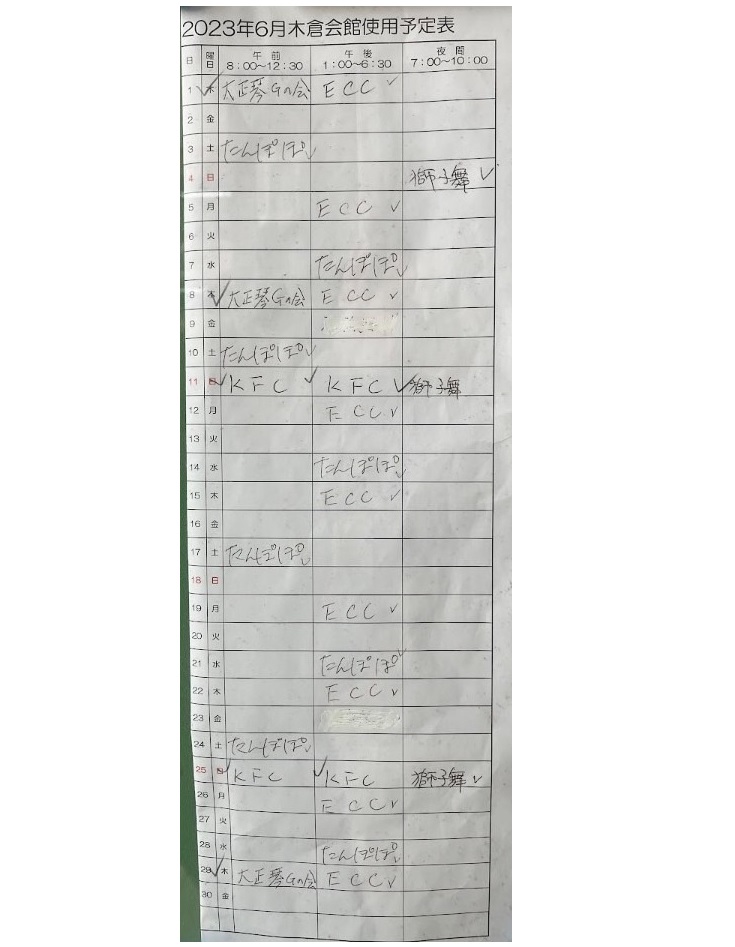 2023年6月木倉会館使用予定表
日 曜日 午前 8:00~12:30 午後 1:00~6:30 夜間 7:00~10:00
1 木 大正琴Gの会 ECC
2 金
3 土 たんぽぽ
4 日 獅子舞
5 月 ECC
6 火
7 水 たんぽぽ
8 木 大正琴Gの会 ECC
9 金
10 土 たんぽぽ
11 日 KFC KFC 獅子舞
12 月 ECC
13 火
14 水 たんぽぽ
15 木 ECC
16 金
17 土 たんぽぽ
18 日
19 月 ECC
20 火
21 水 たんぽぽ
22 木 ECC
23 金
24 土 たんぽぽ
25 日 KFC KFC 獅子舞
26 月 ECC
27 火
28 水 たんぽぽ
29 木 大正琴Gの会 ECC
30 金